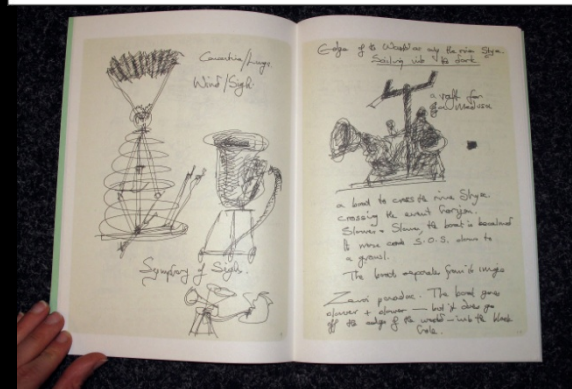 Wind/Sigh
Symphony of Sighs.
Edge of the World as the river Styx.
Sailing into the dark
a raft for
the Medusa
a boat to cross the river Styx
crossing the event horizon.
Slower + Slower, the boat is becalmed
morse code S.O.S. down to
a growl.
The boat
Zeno's paradox. The boat goes
slower + slower — but it does go
off the edge of the world – into the black
hole.